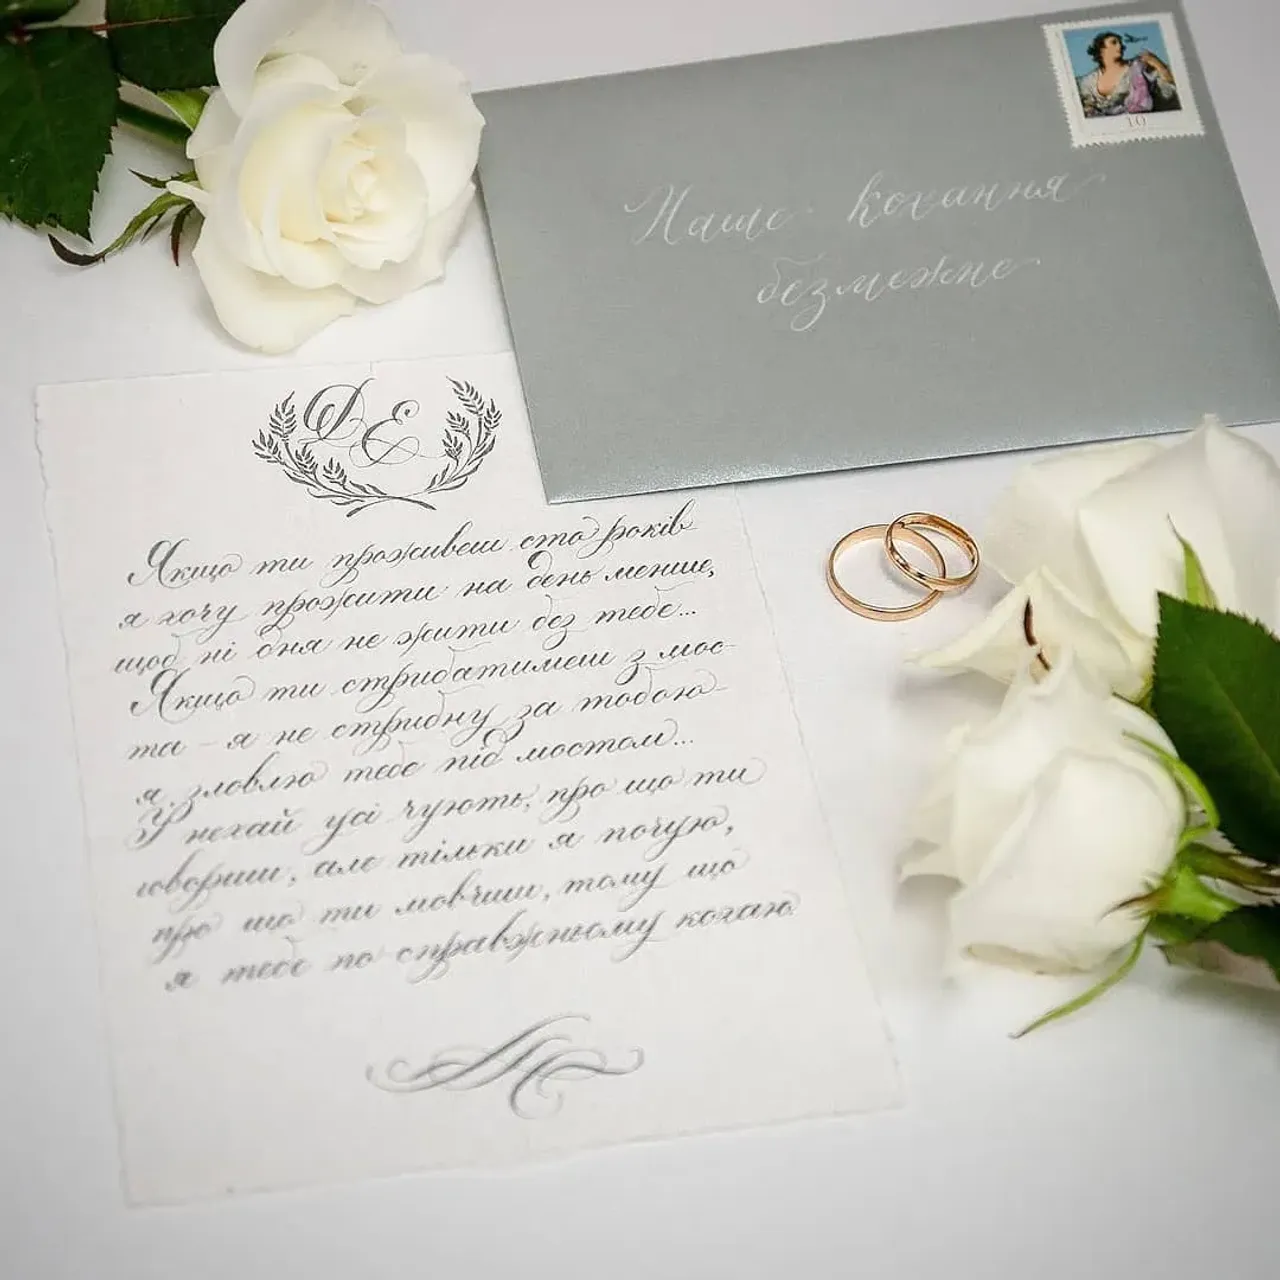 10
Наше кохання
безмежне
Д Е
Якщо ти проживеш сто років
я хочу прожити на день менше,
щоб ні дня не жити без тебе...
Якщо ти стрибатимеш з мос-
та - я не стрибну за тобою
я зловлю тебе під мостом...
У нехай усі чують, про що ти
говориш, але тільки я почую,
про що ти мовчиш, тому що
я тебе по справжньому кохаю